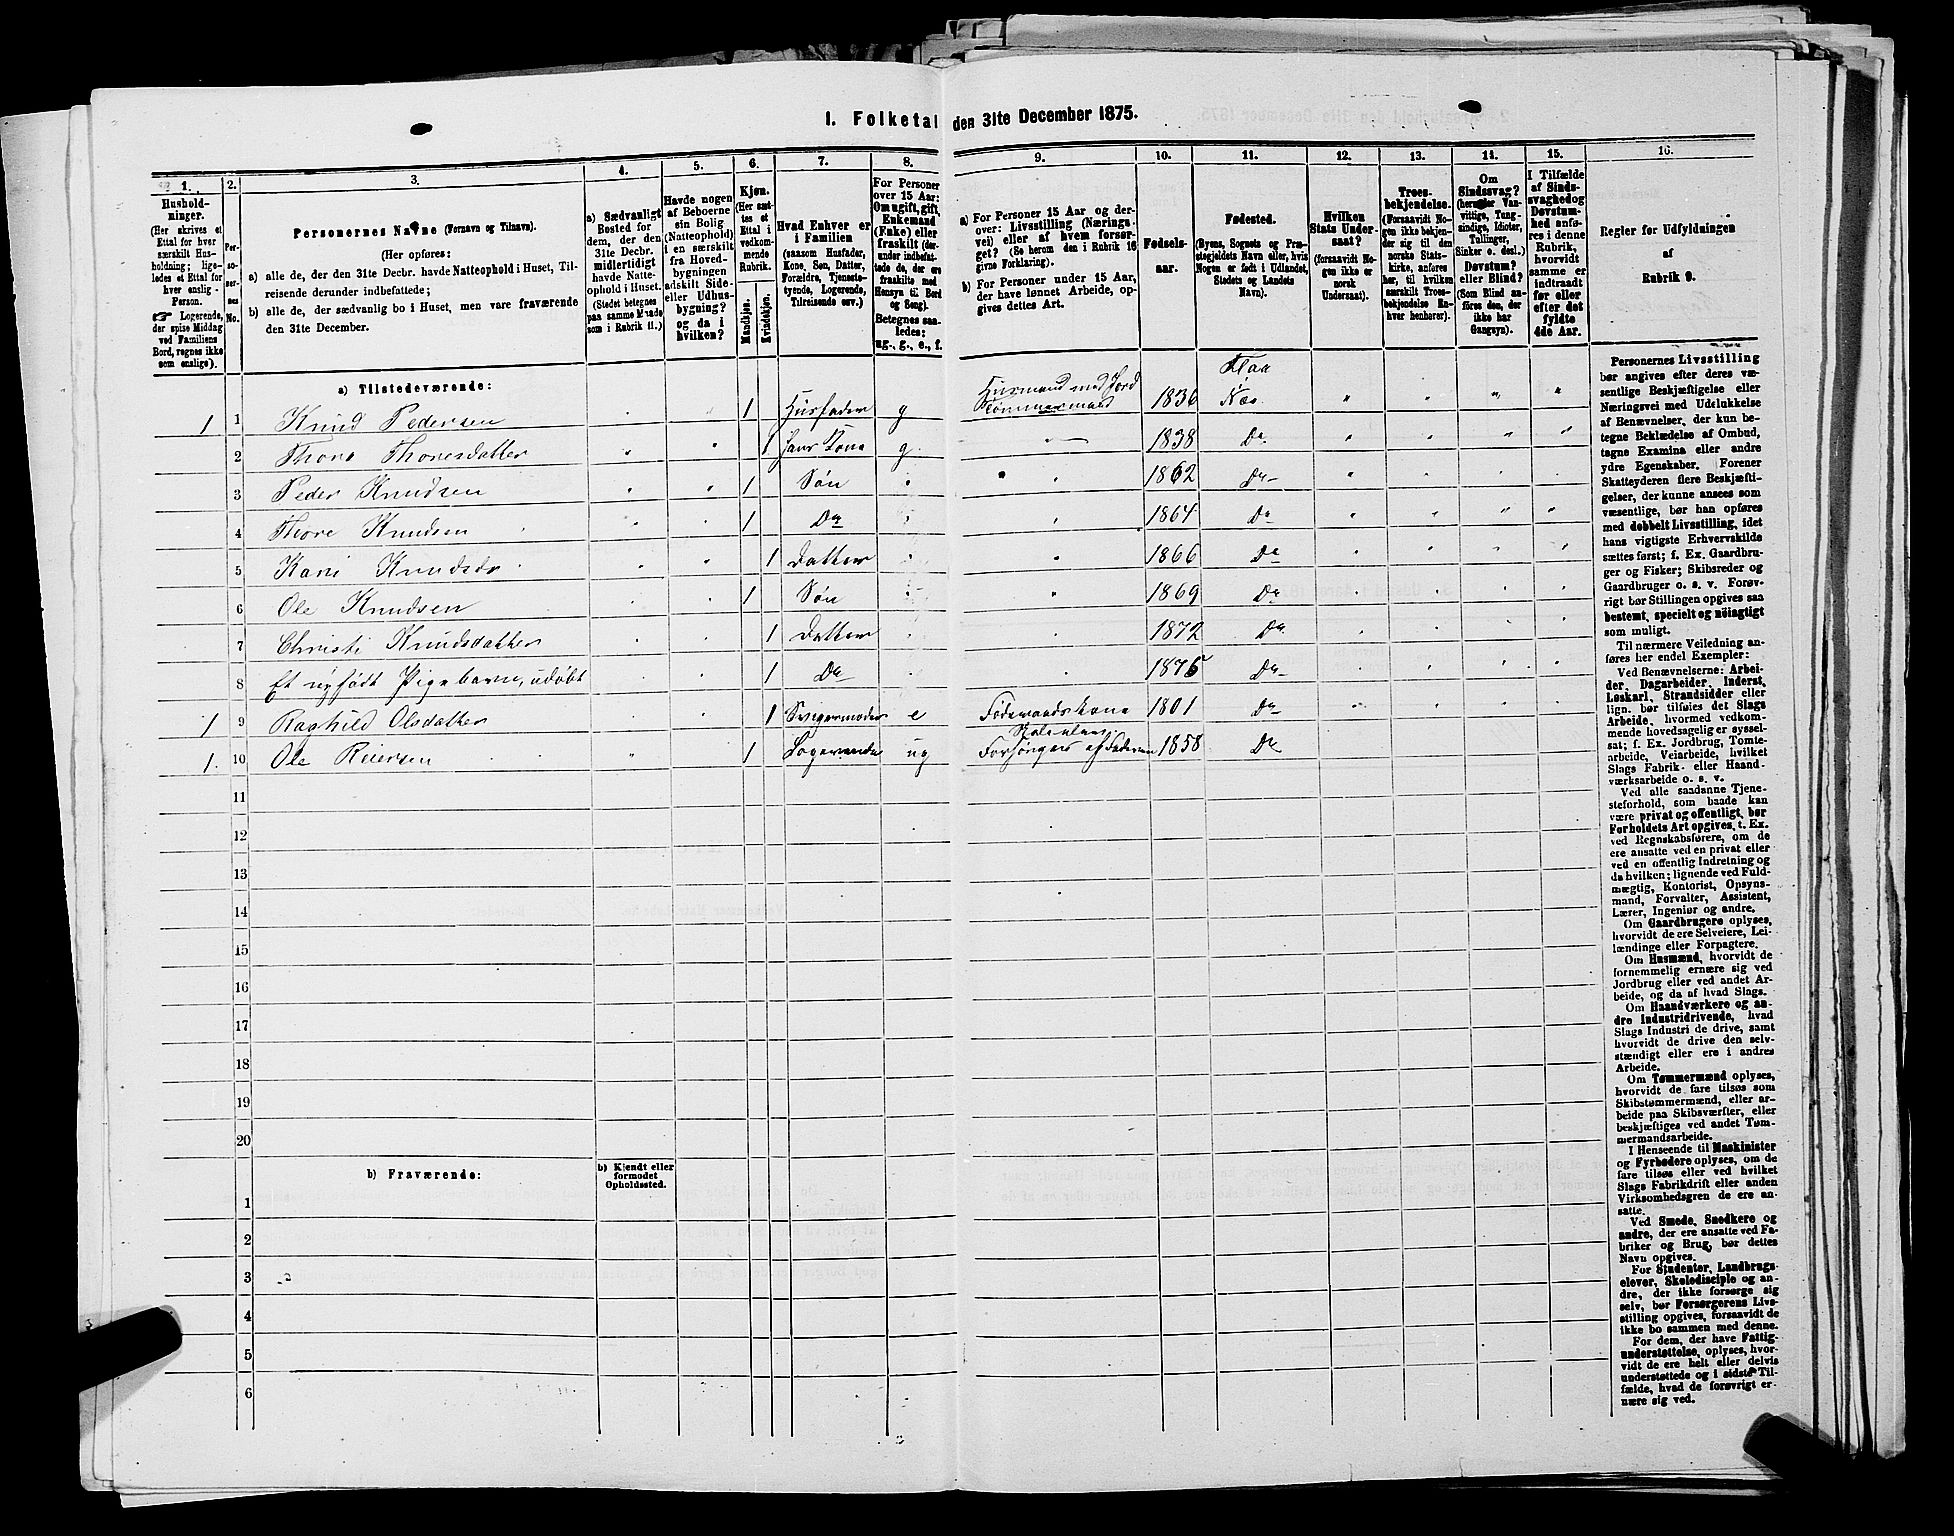 1. Folketal den 31te December 1875.
1.
Hushold-
ninger.
(Her skrives et
Ettal for hver
særskilt Hus-
holdning; lige-
ledes et Ettal for
hver enslig
Person.
Logerende,
der spise Middag
ved Familiens
Bord, regnes ikke
som enslige).
2.
Per-
so-
ner-
nes
No.
3.
Personernes Navne (Fornavn og Tilnavn).
(Her opføres:
a) alle de, der den 31te Decbr. havde Natteophold i Huset, Til-
reisende derunder indbefattede;
b) alle de, der sædvanlig bo i Huset, men vare fraværende
den 31te December.
4.
a) Sædvanligt
Bosted for
dem, der den
31te Decbr.
midlertidigt
havde Natte-
ophold i Huset.
(Stedet betegnes
paa samme Maade
som i Rubrik 11.)
5.
Havde nogen
af Beboerne
sin Bolig
(Natteophold)
i en særskilt
fra Hoved-
bygningen
adskilt Side-
eller Udhus-
bygning?
og da i
hvilken?
6.
Kjøn.
(Her sæt-
tes et
Ettal i
vedkom-
mende
Rubrik.
Mandkjøn.
Kvindekjøn.
7.
Hvad Enhver er
i Familien
(saasom Husfader,
Kone, Søn, Datter,
Forældre, Tjeneste-
tyende, Logerende,
Tilreisende osv.)
8.
For Personer
over 15 Aar:
Om ugift, gift,
Enkemand
(Enke) eller
fraskilt (der-
under indbefat-
tede de, der ere
fraskilte med
Hensyn til Bord
og Seng).
Betegnes saa-
ledes:
ug., g., e., f.
9.
a) For Personer 15 Aar og der-
over: Livsstilling (Nærings-
vei) eller af hvem forsør-
get? (Se herom den i Rubrik 16
givne Forklaring).
b) For Personer under 15 Aar,
der have lønnet Arbeide, op-
gives dettes Art.
10.
Fødsels-
aar.
11.
Fødested.
(Byens, Sognets og Præ-
stegjeldets Navn eller, hvis
Nogen er født i Udlandet,
Stedets og Landets
Navn).
12.
Hvilken
Stats Under-
saat?
(forsaavidt No-
gen ikke er
norsk
Undersaat).
13.
Troes-
bekjendelse.
(Forsaavidt No-
gen ikke bekjen-
der sig til den
norske Stats-
kirke, anføres
her, til hvilken
særskilt Troes-
bekjendelse En-
hver henhører).
14.
Om
Sindssvag?
(herunder Van-
vittige, Tung-
sindige, Idioter,
Tullinger,
Sinker o. desl.)
Døvstum?
eller Blind?
(Som Blind an-
føres den, der
ikke har
Gangsyn).
15.
I Tilfælde
af Sinds-
svaghed og
Døvstum-
hed anfø-
res i denne
Rubrik,
hvorvidt
samme er
indtraadt
før eller
efter det
fyldte
4de Aar.
16.
Regler for Udfyldningen
af
Rubrik 9.
a) Tilstedeværende:
1 1 Knud Pedersen 1 Husfader g Husmand med Jord Tømmermand 1836 Flaa Næs
2 Thora Thoresdatter 1 hans Kone g. 1838 Do.
3 Peder Knudsen 1 Søn 1862 Do
4 Thore Knudsen 1 Do 1864 Do
5 Kari Knudsdr 1 Datter 1866 Do
6 Ole Knudsen 1 Søn 1869 Do
7 Christi Knudsdatter 1 Datter 1872 Do.
8 Et nyfødt Pigebarn, udøbt 1 Do 1875 Do
1 9 Raghild Olsdatter 1 Svigermoder e Føderaadskone 1801 Do
1. 10 Ole Reiersen 1 Logerende ug Forsørges af Faderen 1858 Do
11
12
13
14
15
16
17
18
19
20
b) Fraværende:
b) Kjendt eller
formodet
Opholdssted.
1
2
3
4
5
6
Personernes Livsstilling
bør angives efter deres væ-
sentlige Beskjæftigelse eller
Næringsvei med Udelukkelse
af Benævnelser, der kun be-
tegne Beklædelse af Ombud,
tagne Examina eller andre
ydre Egenskaber. Forener
Skatteyderen flere Beskjæfti-
gelser, der kunne ansees som
væsentlige, bør han opføres
med dobbelt Livsstilling, idet
hans vigtigste Erhvervskilde
sættes først; f. Ex. Gaardbru-
ger og Fisker; Skibsreder og
Gaardbruger o. s. v. Forøv-
rigt bør Stillingen opgives saa
bestemt, specielt og nöiagtigt
som muligt.
Til nærmere Veiledning an-
føres her endel Exempler:
Ved Benævnelserne: Arbei-
der, Dagarbeider, Inderst,
Løskarl, Strandsidder eller
lign. bør tilføies det Slags
Arbeide, hvormed vedkom-
mende hovedsagelig er syssel-
sat; f. Ex. Jordbrug, Tomte-
arbeide, Veiarbeide, hvilket
Slags Fabrik- eller Haand-
værksarbeide o. s. v.
Ved alle saadanne Tjene-
steforhold, som baade kan
være privat og offentligt, bør
Forholdets Art opgives, t. Ex.
ved Regnskabsførere, om de
ere ansatte ved en privat eller
ved en offentlig Indretning og
da hvilken; lignende ved Fuld-
mægtig, Kontorist, Opsyns-
mand, Forvalter, Assistent,
Lærer, Ingeniør og andre.
Om Gaardbrugere oplyses,
hvorvidt de ere Selveiere, Lei-
lændinge eller Forpagtere.
Om Husmænd, hvorvidt de
fornemmelig ernære sig ved
Jordbrug eller ved andet Ar-
beide, og da af hvad Slags.
Om Haandværkere og an-
dre Industridrivende, hvad
Slags Industri de drive, samt
hvorvidt de drive den selv-
stændigt eller ere i andres
Arbeide.
Om Tømmermænd oplyses,
hvorvidt de fare tilsøs som
Skibstømmermænd, eller ar-
beide paa Skibsværfter, eller
beskjæftiges ved andet Tøm-
mermandsarbeide.
I Henseende til Maskinister
og Fyrbødere oplyses, om de
fare tilsøs eller ved hvilket
Slags Fabrikdrift eller anden
Virksomhedsgren de ere an-
satte.
Ved Smede, Snedkere og
andre, der ere ansatte ved Fa-
briker og Brug, bør dettes
Navn opgives.
For Studenter, Landbrugs-
elever, Skoledisciple og an-
dre, der ikke forsørge sig
selv, bør Forsørgerens Livs-
stilling opgives, forsaavidt de
ikke bo sammen med denne.
For dem, der have Fattig-
understøttelse, oplyses, hvor-
vidt de ere helt eller delvis
understøttede og i sidste Til-
fælde, hvad de forøvrigt er-
nære sig ved.